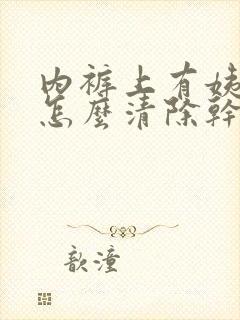 内裤上有姨
怎麼清除幹
歆潼